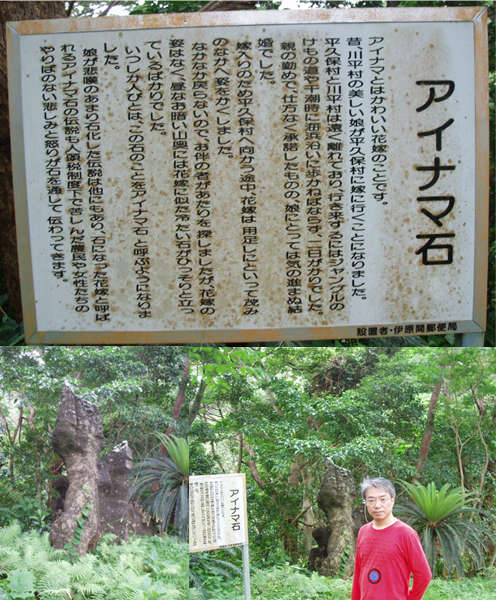 アイナマ石
アイナマとはかわいい花嫁のことです。
昔、川平村の美しい娘が平久保村に嫁に行くことになりました。
平久保村と川平村は遠く離れており、行き来するにはジャングルの
けもの道や干潮時に海浜沿いに歩かねばならず、一日がかりでした。
親の勧めで、仕方なく承諾したものの、娘にとっては気の進まぬ結
婚でした。
嫁入りのため平久保村へ向かう途中、花嫁は「用足しに」といって茂み
のなかへ姿をかくしました。
なかなか戻らないので、お伴の者があたりを探しましたが、花嫁の
姿はなく、昼なお暗い山奥には花嫁に似た冷たい石がひっそりと立っ
ているばかりでした。
いつしか人びとは、この石のことを「アイナマ石」と呼ぶようになりま
した。
娘が悲嘆のあまり石化した伝説は他にもあり、「石になった花嫁」と呼ば
れるアイナマ石の伝説も人頭税制度下で苦しんだ農民や女性たちの
やりばのない悲しみと怒りが石を通して伝わってきます。
設置者・伊原間郵便局
アイナマ石